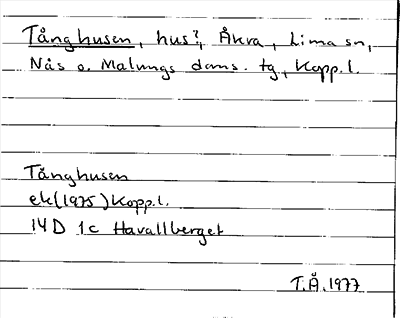 Tånghusen, hus?, Åkra, Lima sn,
Nås o. Malungs doms. tg, Kopp.l.
Tånghusen
ek(1975)Kopp.l.
14D 1c Havallberget
T.Å.1977